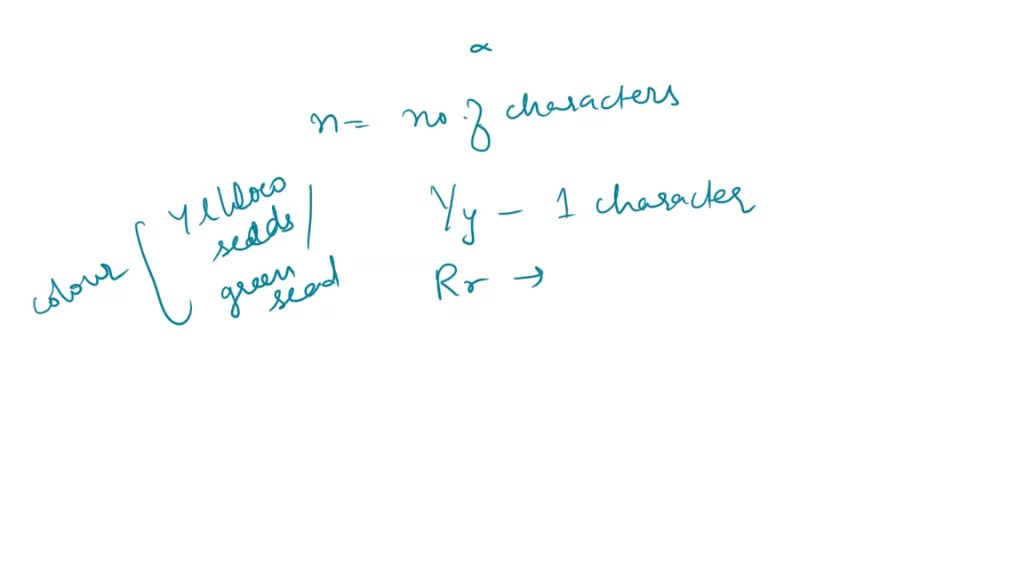 ∝
n = no. of characters
Yellow seeds
green seed
colour
Yy - 1 character
Rr →